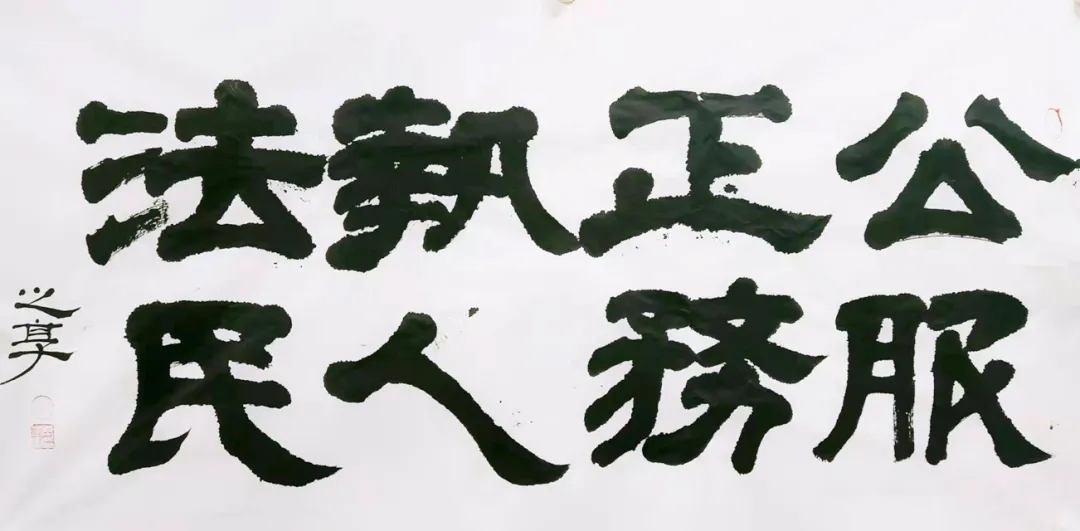 公正執法
服務人民
之享